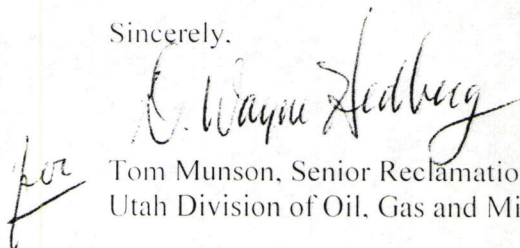 Sincerely,
D. Wayne Hedberg
for Tom Munson, Senior Reclamatio
Utah Division of Oil, Gas and Mi